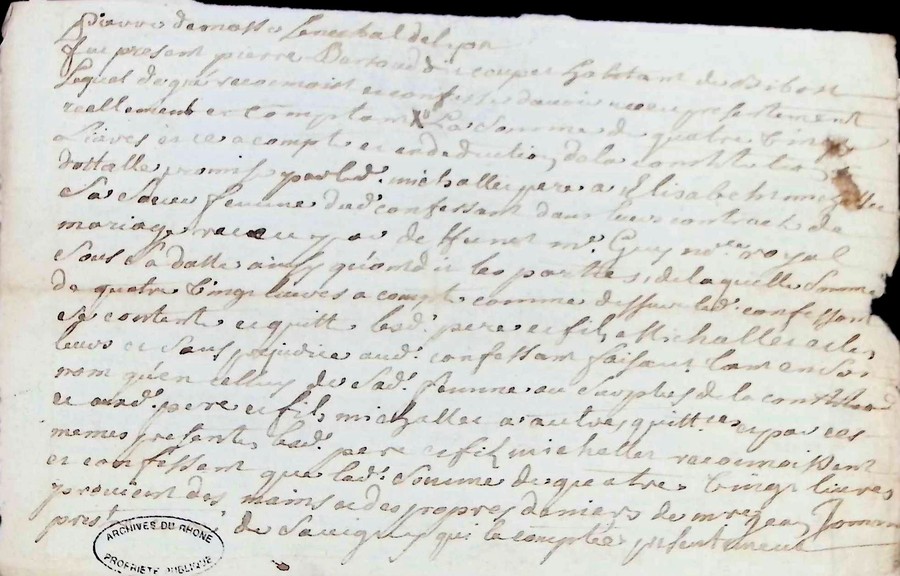 pierre demasso senechal de lyon
fut present pierre Bertaud dit coupet habitant de Bibost
lequel de gré reconnoist et confesse davoir receu presentement
reellement et comptant X la somme de quatre vingt
livres et ce a compte et en deduction de la constitution
dottalle promise par led. michallet pere a Elisabeth michallet
sa soeur femme dud confessant dans leur contract de
mariage receu par deffunct me. Guy nore. royal
sous sa datte ainsy quont dit les parties, de laquelle somme
de quatre vingt livres a compte comme dessus led. confessant
se contente et quitte lesd. pere et fils Michallet et les
leurs et sans prejudice aud. confessant faisant tant en son
nom quen celluy de sad. femme au surplus de la constitution
et ausd. pere et fils michallet a autres quittces et par ces
memes presentes lesd. pere et fils michallet reconnoissent
et confessent que lad. somme de quatre vingt livres
provient des mains et des propres deniers de mre jean
prest de Savigny qui la comptée presentement
ARCHIVES DU RHONE
PROPRIETE PUBLIQUE